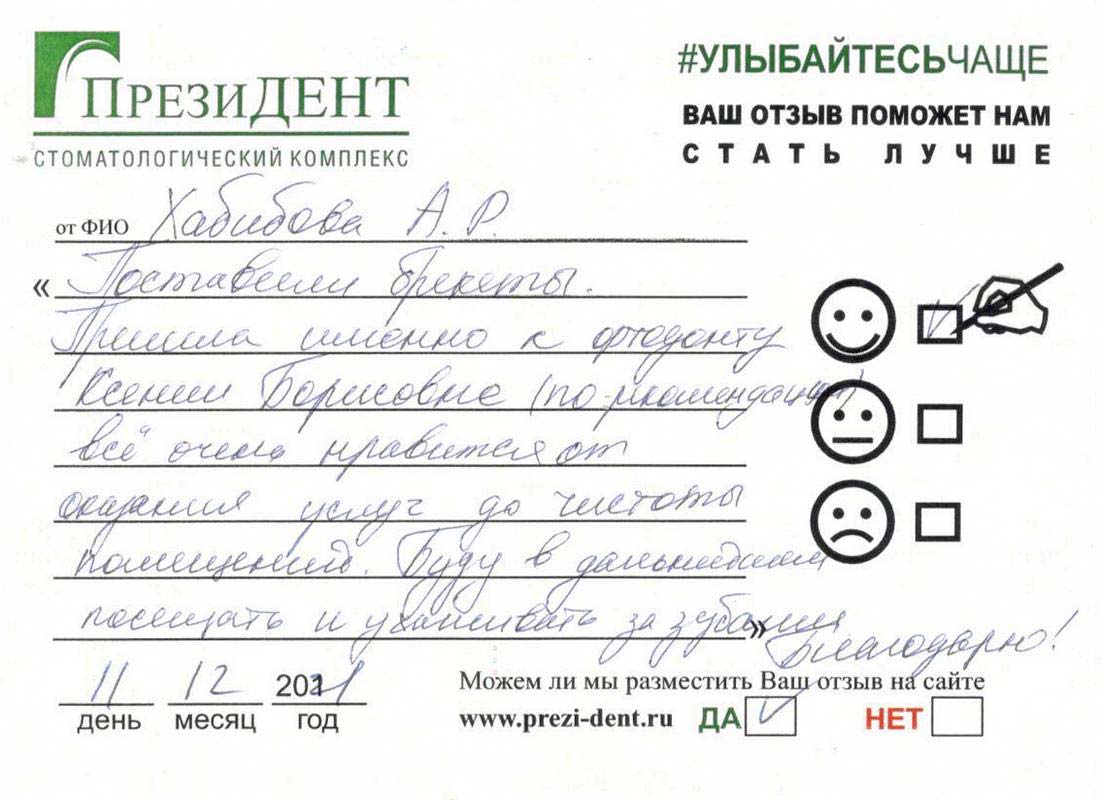 ПРЕЗИДЕНТ
СТОМАТОЛОГИЧЕСКИЙ КОМПЛЕКС
#УЛЫБАЙТЕСЬЧАЩЕ
ВАШ ОТЗЫВ ПОМОЖЕТ НАМ
СТАТЬ ЛУЧШЕ
от ФИО Хабибова А.Р.
« Поставили брекеты.
Пришла именно к ортодонту
Ксении Борисовне (по рекомендации)
всё очень нравится от
оказания услуг до чистоты
помещений. Буду в дальнейшем
посещать и ухаживать за зубами »
Благодарю!
11 12 2021
день месяц год
Можем ли мы разместить Ваш отзыв на сайте
www.prezi-dent.ru ДА НЕТ